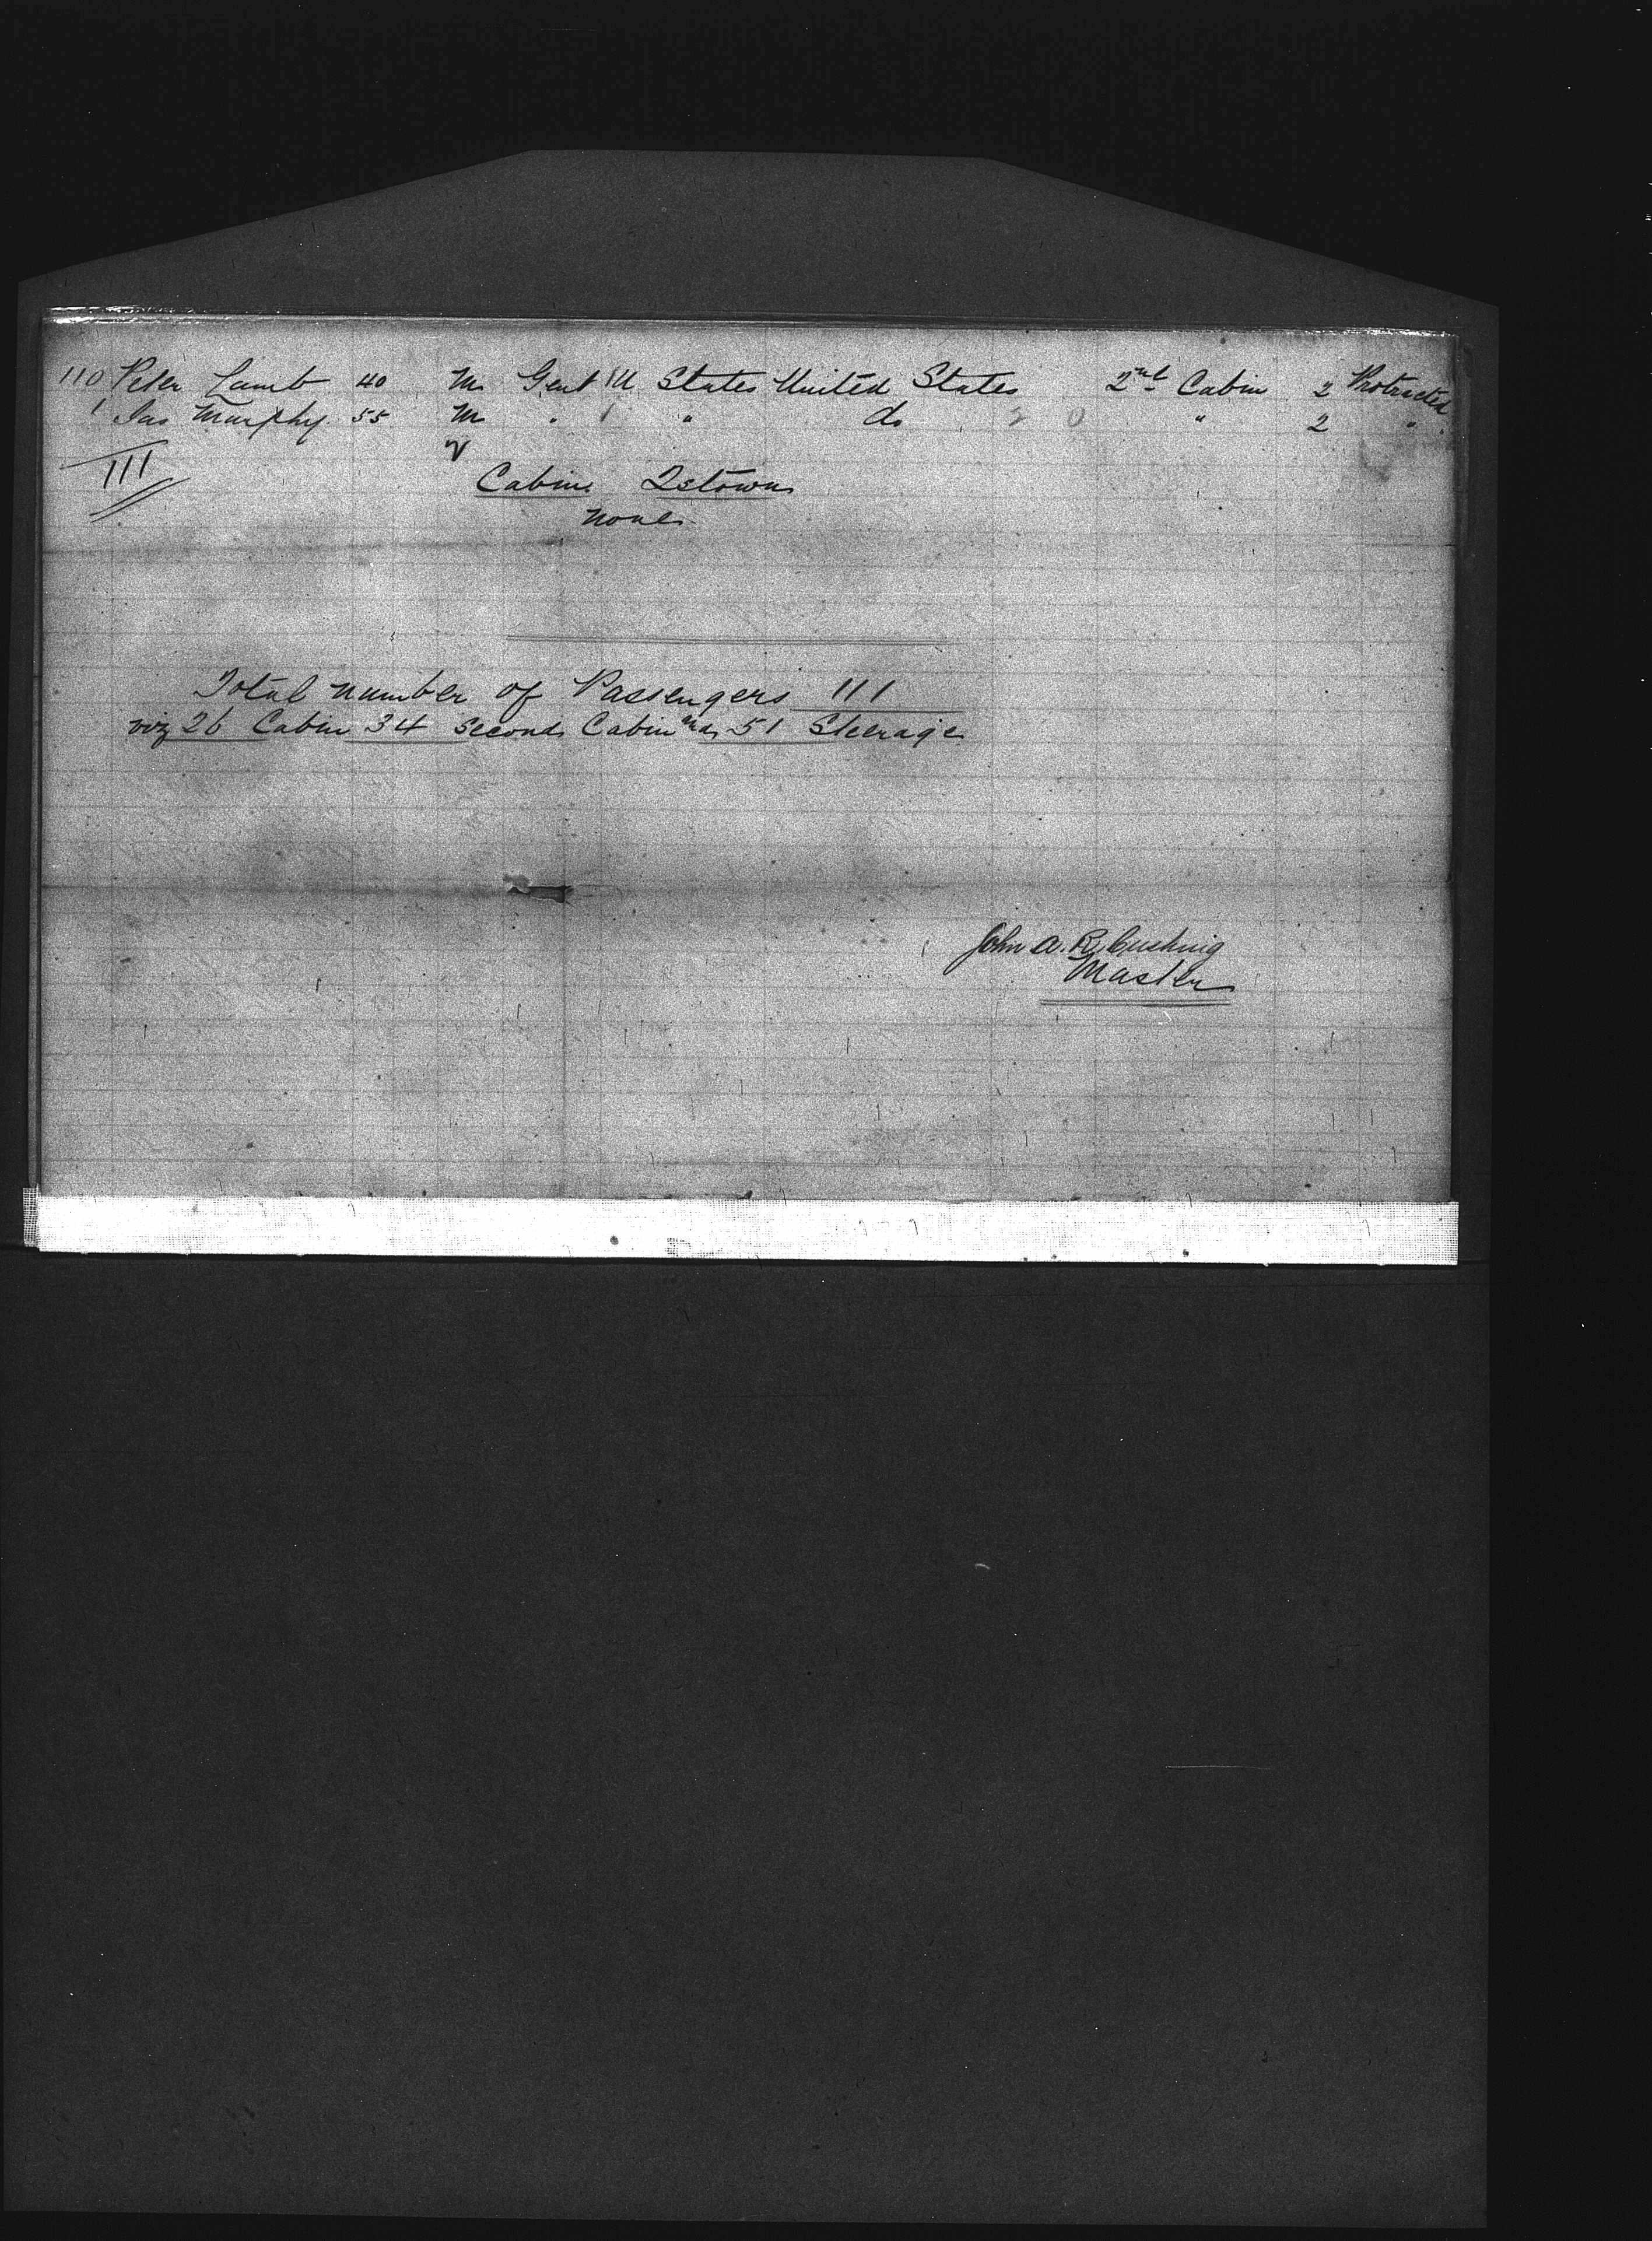 110 Peter Lamb 40 M Gent U States United States 2nd Cabin 2 Protracted
1 Jas Murphy 55 M " " do " 2 "
111
Cabin Qstown
None
Total number of Passengers 111
viz 26 Cabin 34 Second Cabin and 51 Steerage
John A. R. Cushing
Master